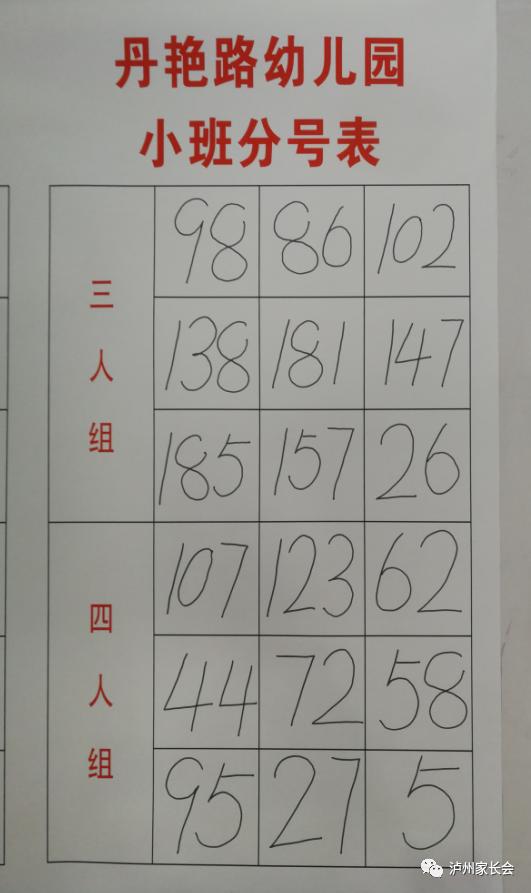 丹艳路幼儿园
小班分号表
三人组
98 86 102
138 181 147
185 157 26
四人组
107 123 62
44 72 58
95 27 5
泸州家长会